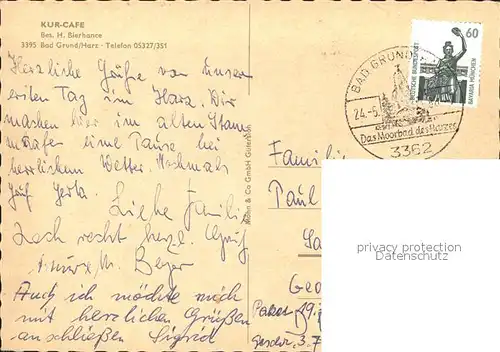 KUR-CAFE
Bes. H. Bierhance
3395 Bad Grund/Harz - Telefon 05327/351
Herzliche Grüße von unser
ersten Tag im Harz. Wir
machen hier im alten
eine Pause, bei
herrlichem Wetter. Nochmals
Gruß Gerta.
Liebe Familie
Koch recht herzl. Gruß
M. Beyer
Auch ich möchte mich
mit herzlichen Grüßen
anschließen Sigrid
Mohn & Co GmbH Gütersloh
BAD GRUND
24.-5.
Das Moorbad des Harzes
3362
60
DEUTSCHE BUNDESPOST
BAVARIA MÜNCHEN
Familie
Paul
privacy protection
Datenschutz
Geo